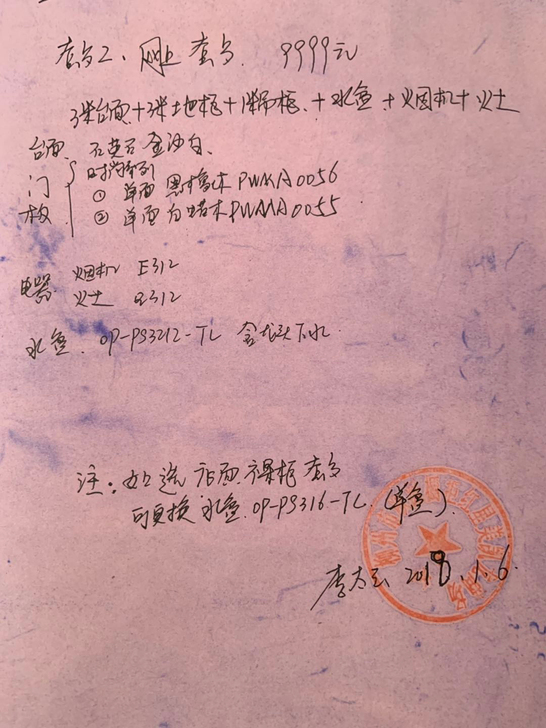 套餐2、网上套餐. 9999元
3米台面+3米地柜+1米吊柜.+水盆+烟机+灶
台面 石英石 金沙白、
门板 时尚系列
① 单面 黑橡木 PWMA0056
② 单面 白蜡木 PWMA0055
电器 烟机 E312
灶 Q312
水盆. OP-PS3212-TL 含龙头下水.
注:如选 台面
可更换 水盆.OP-PS316-TL (单盆).
2018.1.6